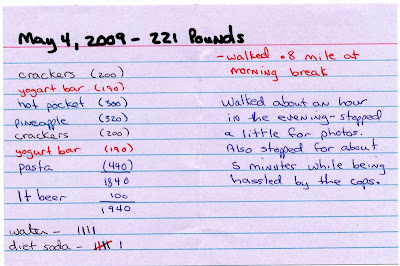 May 4, 2009 - 221 Pounds
crackers (200)
yogart bar (190)
hot pocket (300)
pineapple (320)
crackers (200)
yogurt bar (190)
pasta (440)
1840
lt beer 100
1940
water - ||||
diet soda - |||| |
- walked .8 mile at
morning break
Walked about an hour
in the evening - stopped
a little for photos.
Also stopped for about
5 minutes while being
hassled by the cops.